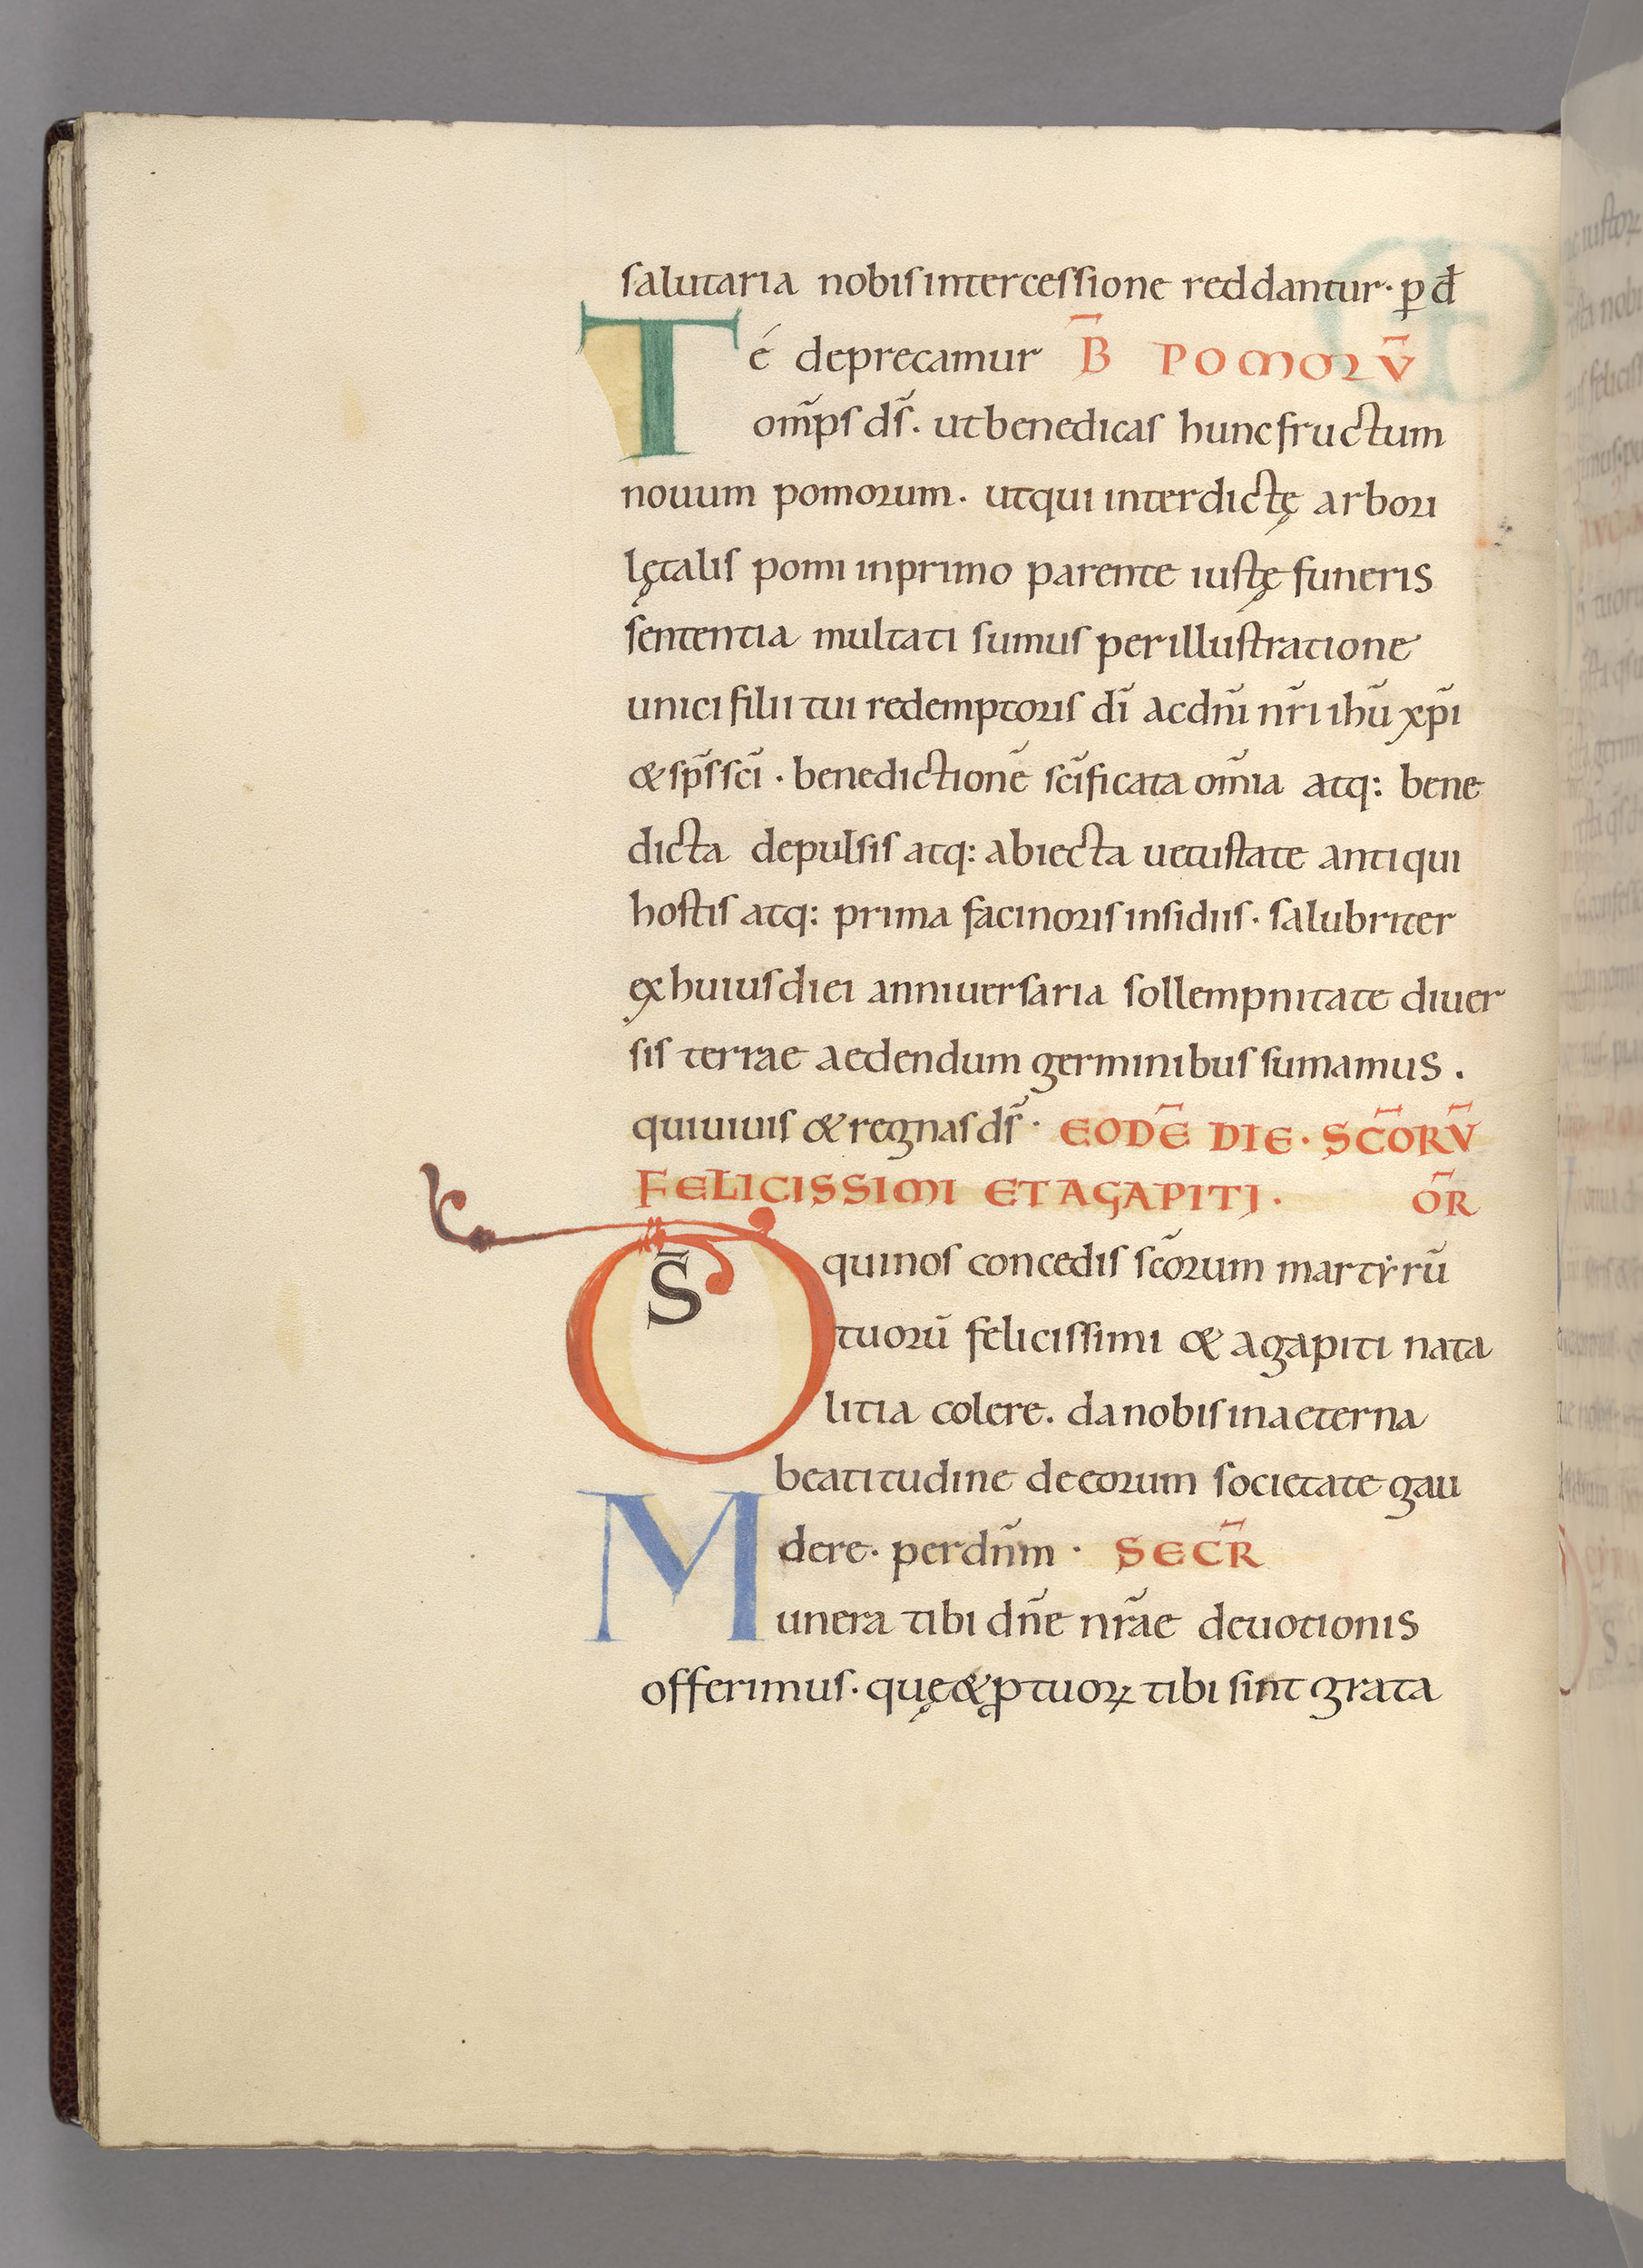 salutaria nobis intercessione reddantur· p̱ đ
Té deprecamur B̄ POMORV̄
om̄ps ds̄. ut benedicas hunc fructum
nouum pomorum. ut qui interdictę arbori
lętalis pomi in primo parente iustę funeris
sententia multati sumus per illustratione
unici filii tui redemptoris dī ac dn̄i nr̄i ihū xp̄i
& sp̄s sc̄i · benedictionē sc̄ificata om̄ia atq: bene
dicta depulsis atq: abiecta uetustate antiqui
hostis atq: prima facinoris insidiis· salubriter
ex huius diei anniuersaria sollempnitate diuer
sis terrae aedendum germinibus sumamus .
qui uiuis & regnas ds̄ · EODĒ DIE · SC̄ORV̄
FELICISSIMI ET AGAPITI · ŌR
Ds̄ qui nos concedis sc̄orum martẏrū
tuorū felicissimi & agapiti nata
litia colere. da nobis in aeterna
beatitudine de eorum societate gau
dere. per dn̄m · SECR̄
Munera tibi dn̄e nr̄ae deuotionis
offerimus· quę & ꝓ tuoꝝ tibi sint grata